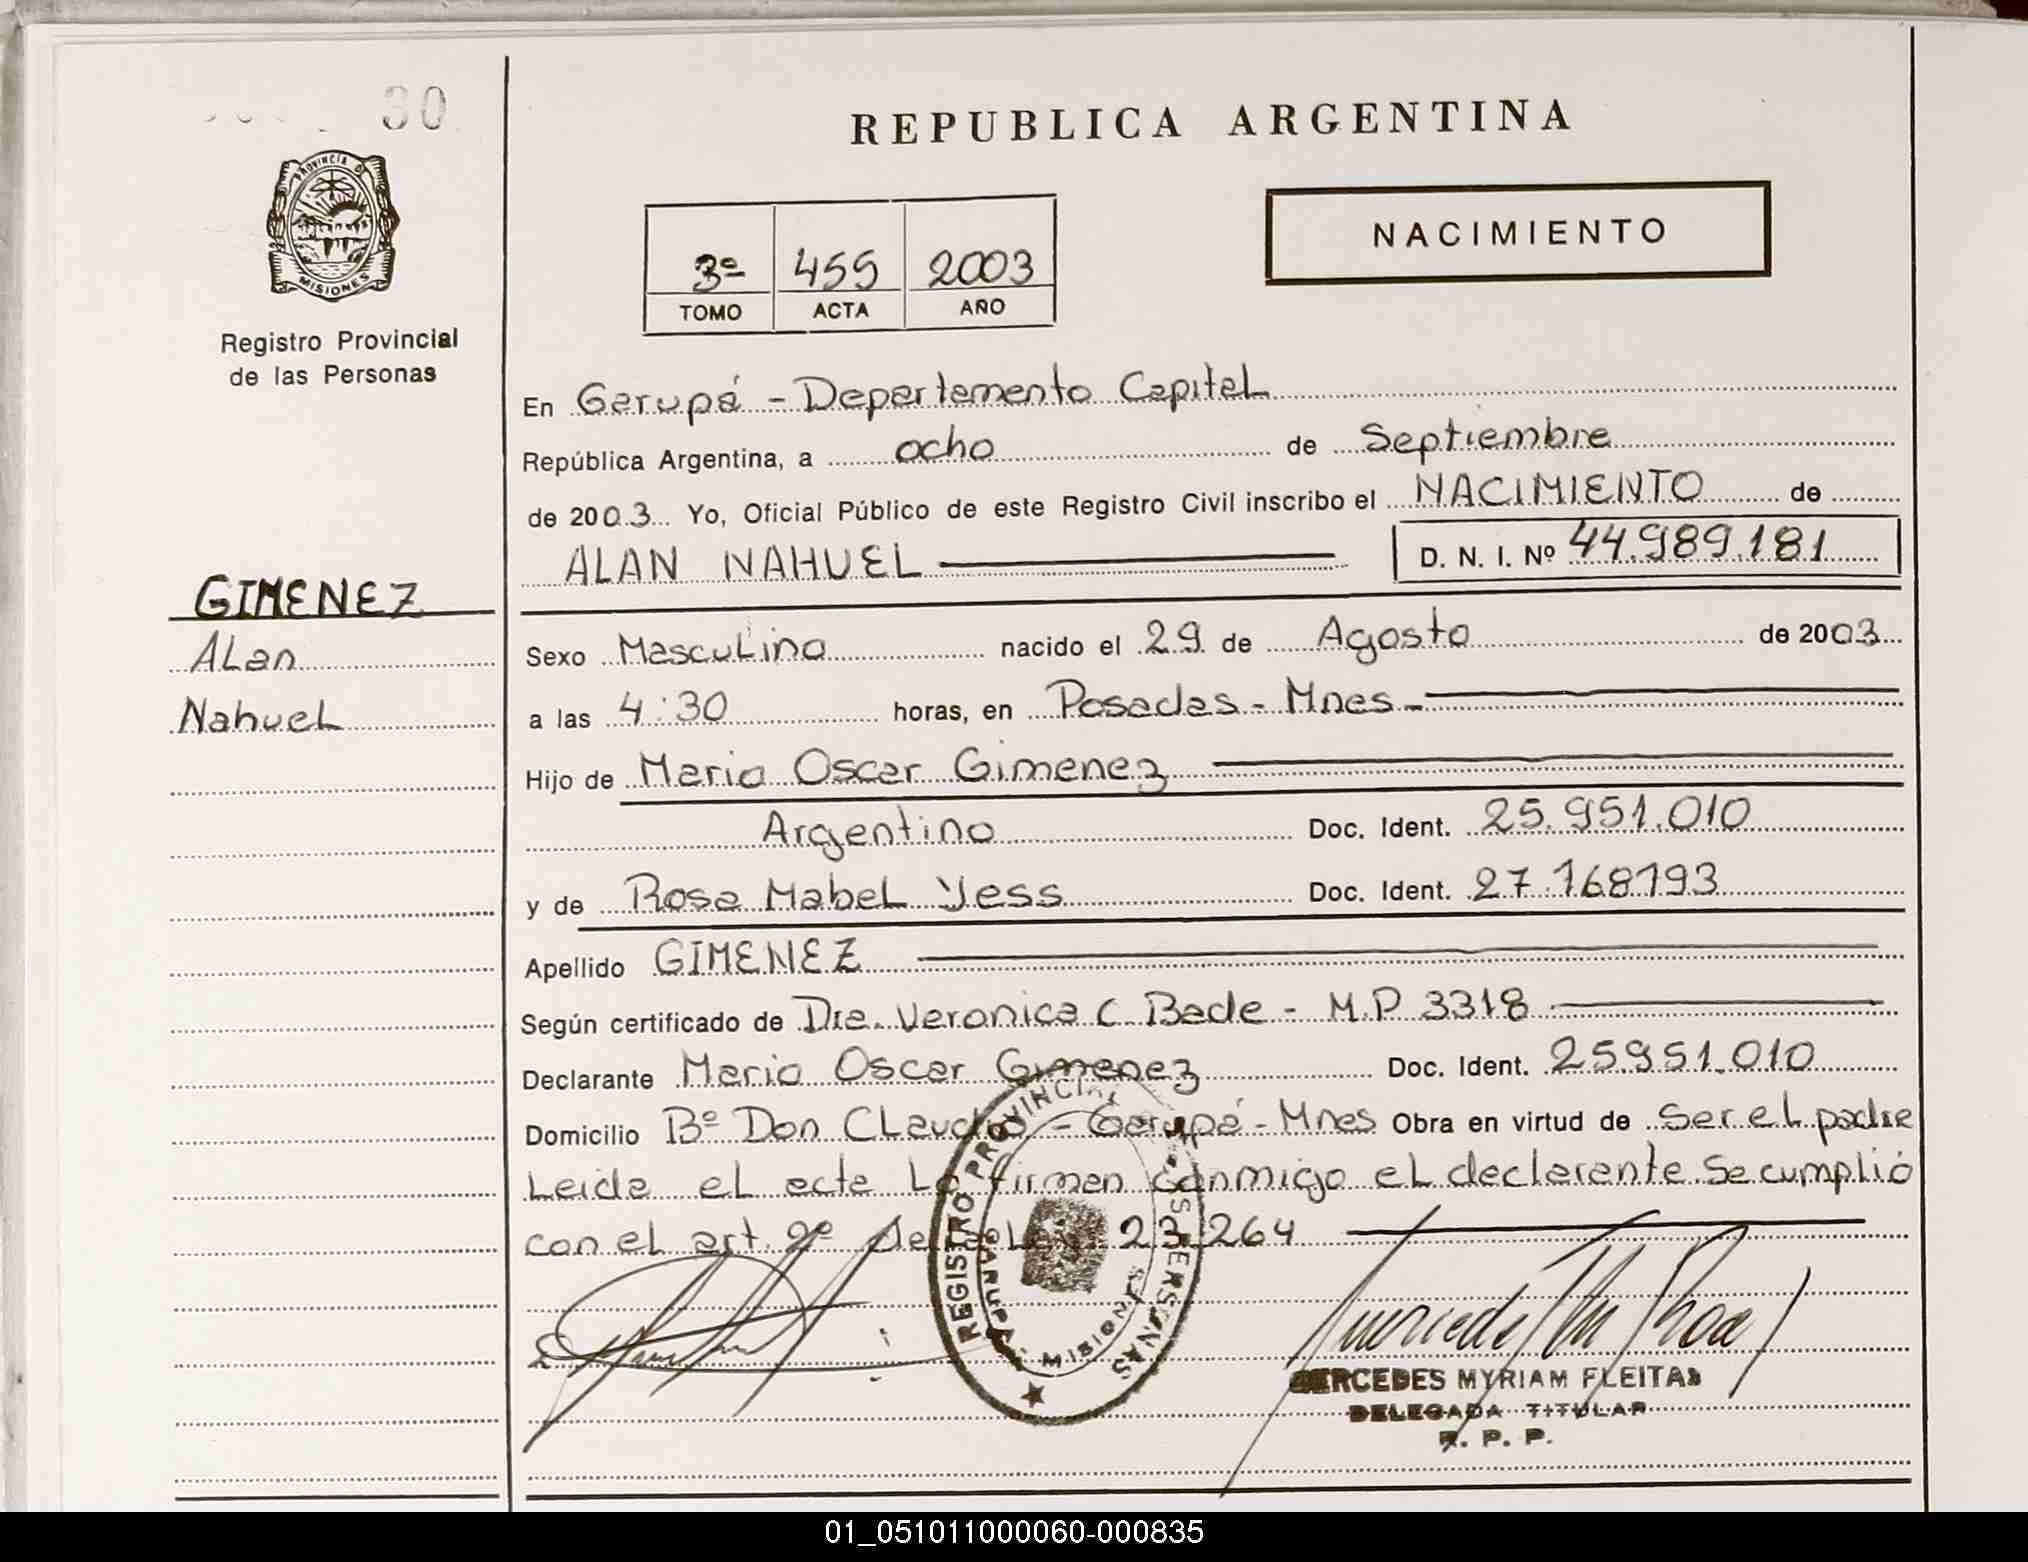 30
PROVINCIA DE
MISIONES
Registro Provincial
de las Personas
GIMENEZ
Alan
Nahuel
REPUBLICA ARGENTINA
3º 455 2003
TOMO ACTA AÑO
NACIMIENTO
En Garupá - Departamento Capital
República Argentina, a ocho de Septiembre
de 2003 Yo, Oficial Público de este Registro Civil inscribo el NACIMIENTO de
ALAN NAHUEL D. N. I. Nº 44.989.181
Sexo Masculino nacido el 29 de Agosto de 2003
a las 4:30 horas, en Posadas - Mnes -
Hijo de Mario Oscar Gimenez
Argentino Doc. Ident. 25.951.010
y de Rosa Mabel Yess Doc. Ident. 27.168193
Apellido GIMENEZ
Según certificado de Dra. Veronica C. Bade - M.P 3318
Declarante Mario Oscar Gimenez Doc. Ident. 25951.010
Domicilio Bº Don Claudio - Garupá - Mnes Obra en virtud de Ser el padre
Leida el acta La firman conmigo el declarante. Se cumplió
con el art. 9º de la Ley 23.264
REGISTRO PROVINCIAL PERSONAS
MISIONES
MERCEDES MYRIAM FLEITAS
DELEGADA TITULAR
R. P. P.
01_051011000060-000835